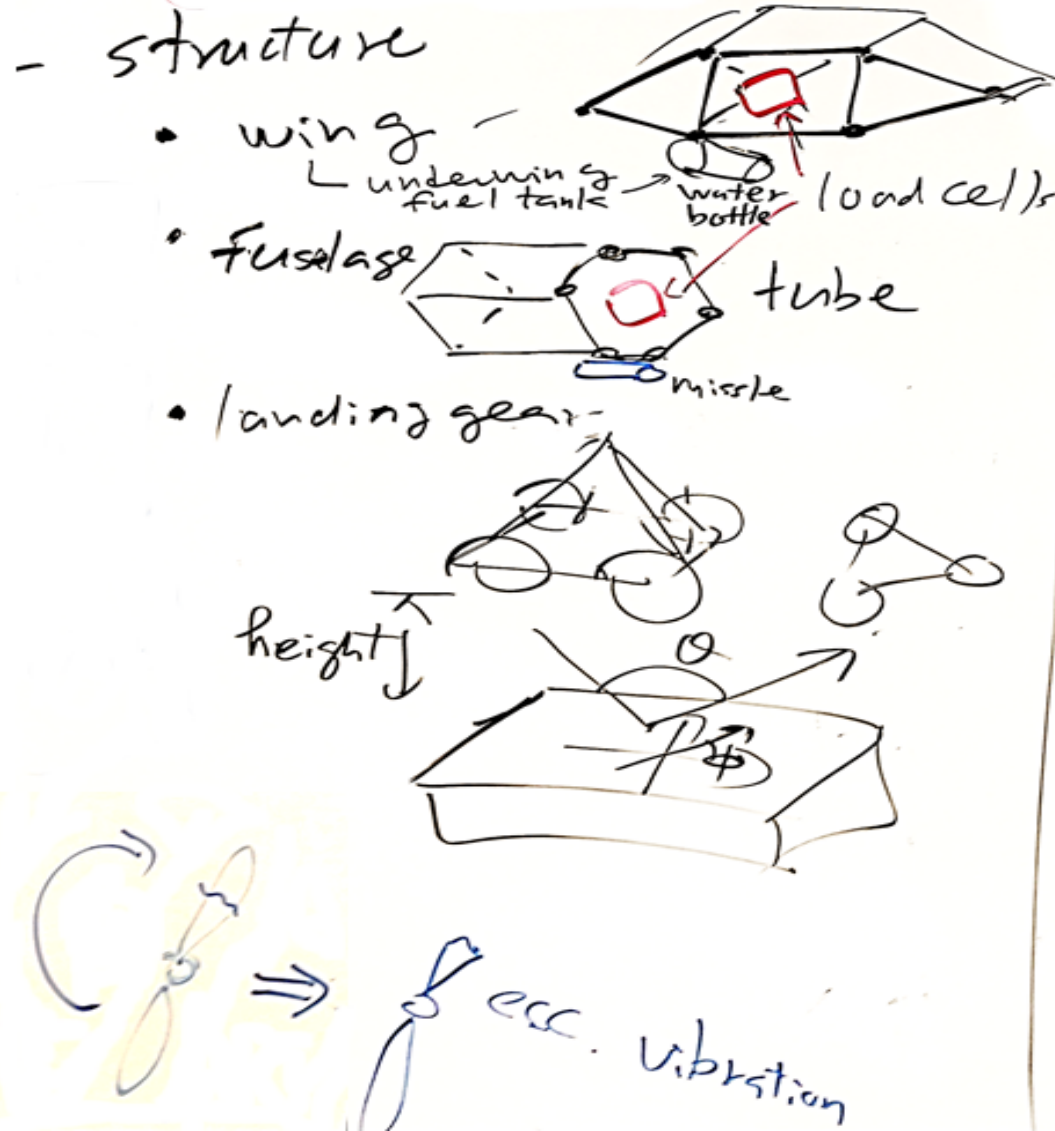 - structure
• wing -
underwing
fuel tank
water
bottle
load cells
• fuselage
tube
missle
• landing gear
height
θ
ϕ
⇒ ecc. vibration